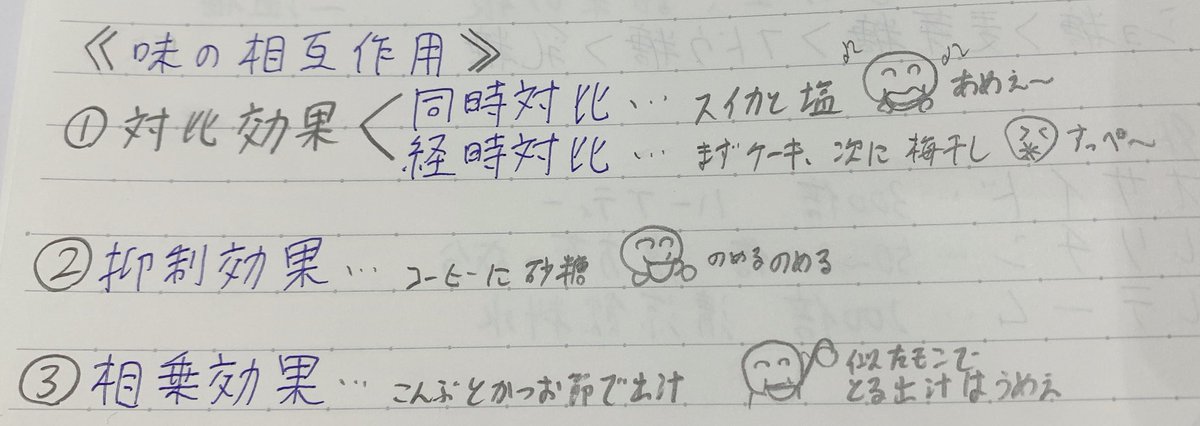 《味の相互作用》
①対比効果<同時対比… スイカと塩 あめぇ〜
経時対比… まずケーキ、次に梅干し すっぺ〜
②抑制効果… コーヒーに砂糖 のめるのめる
③相乗効果… こんぶとかつお節で出汁 似たモンで
とる出汁はうめえ